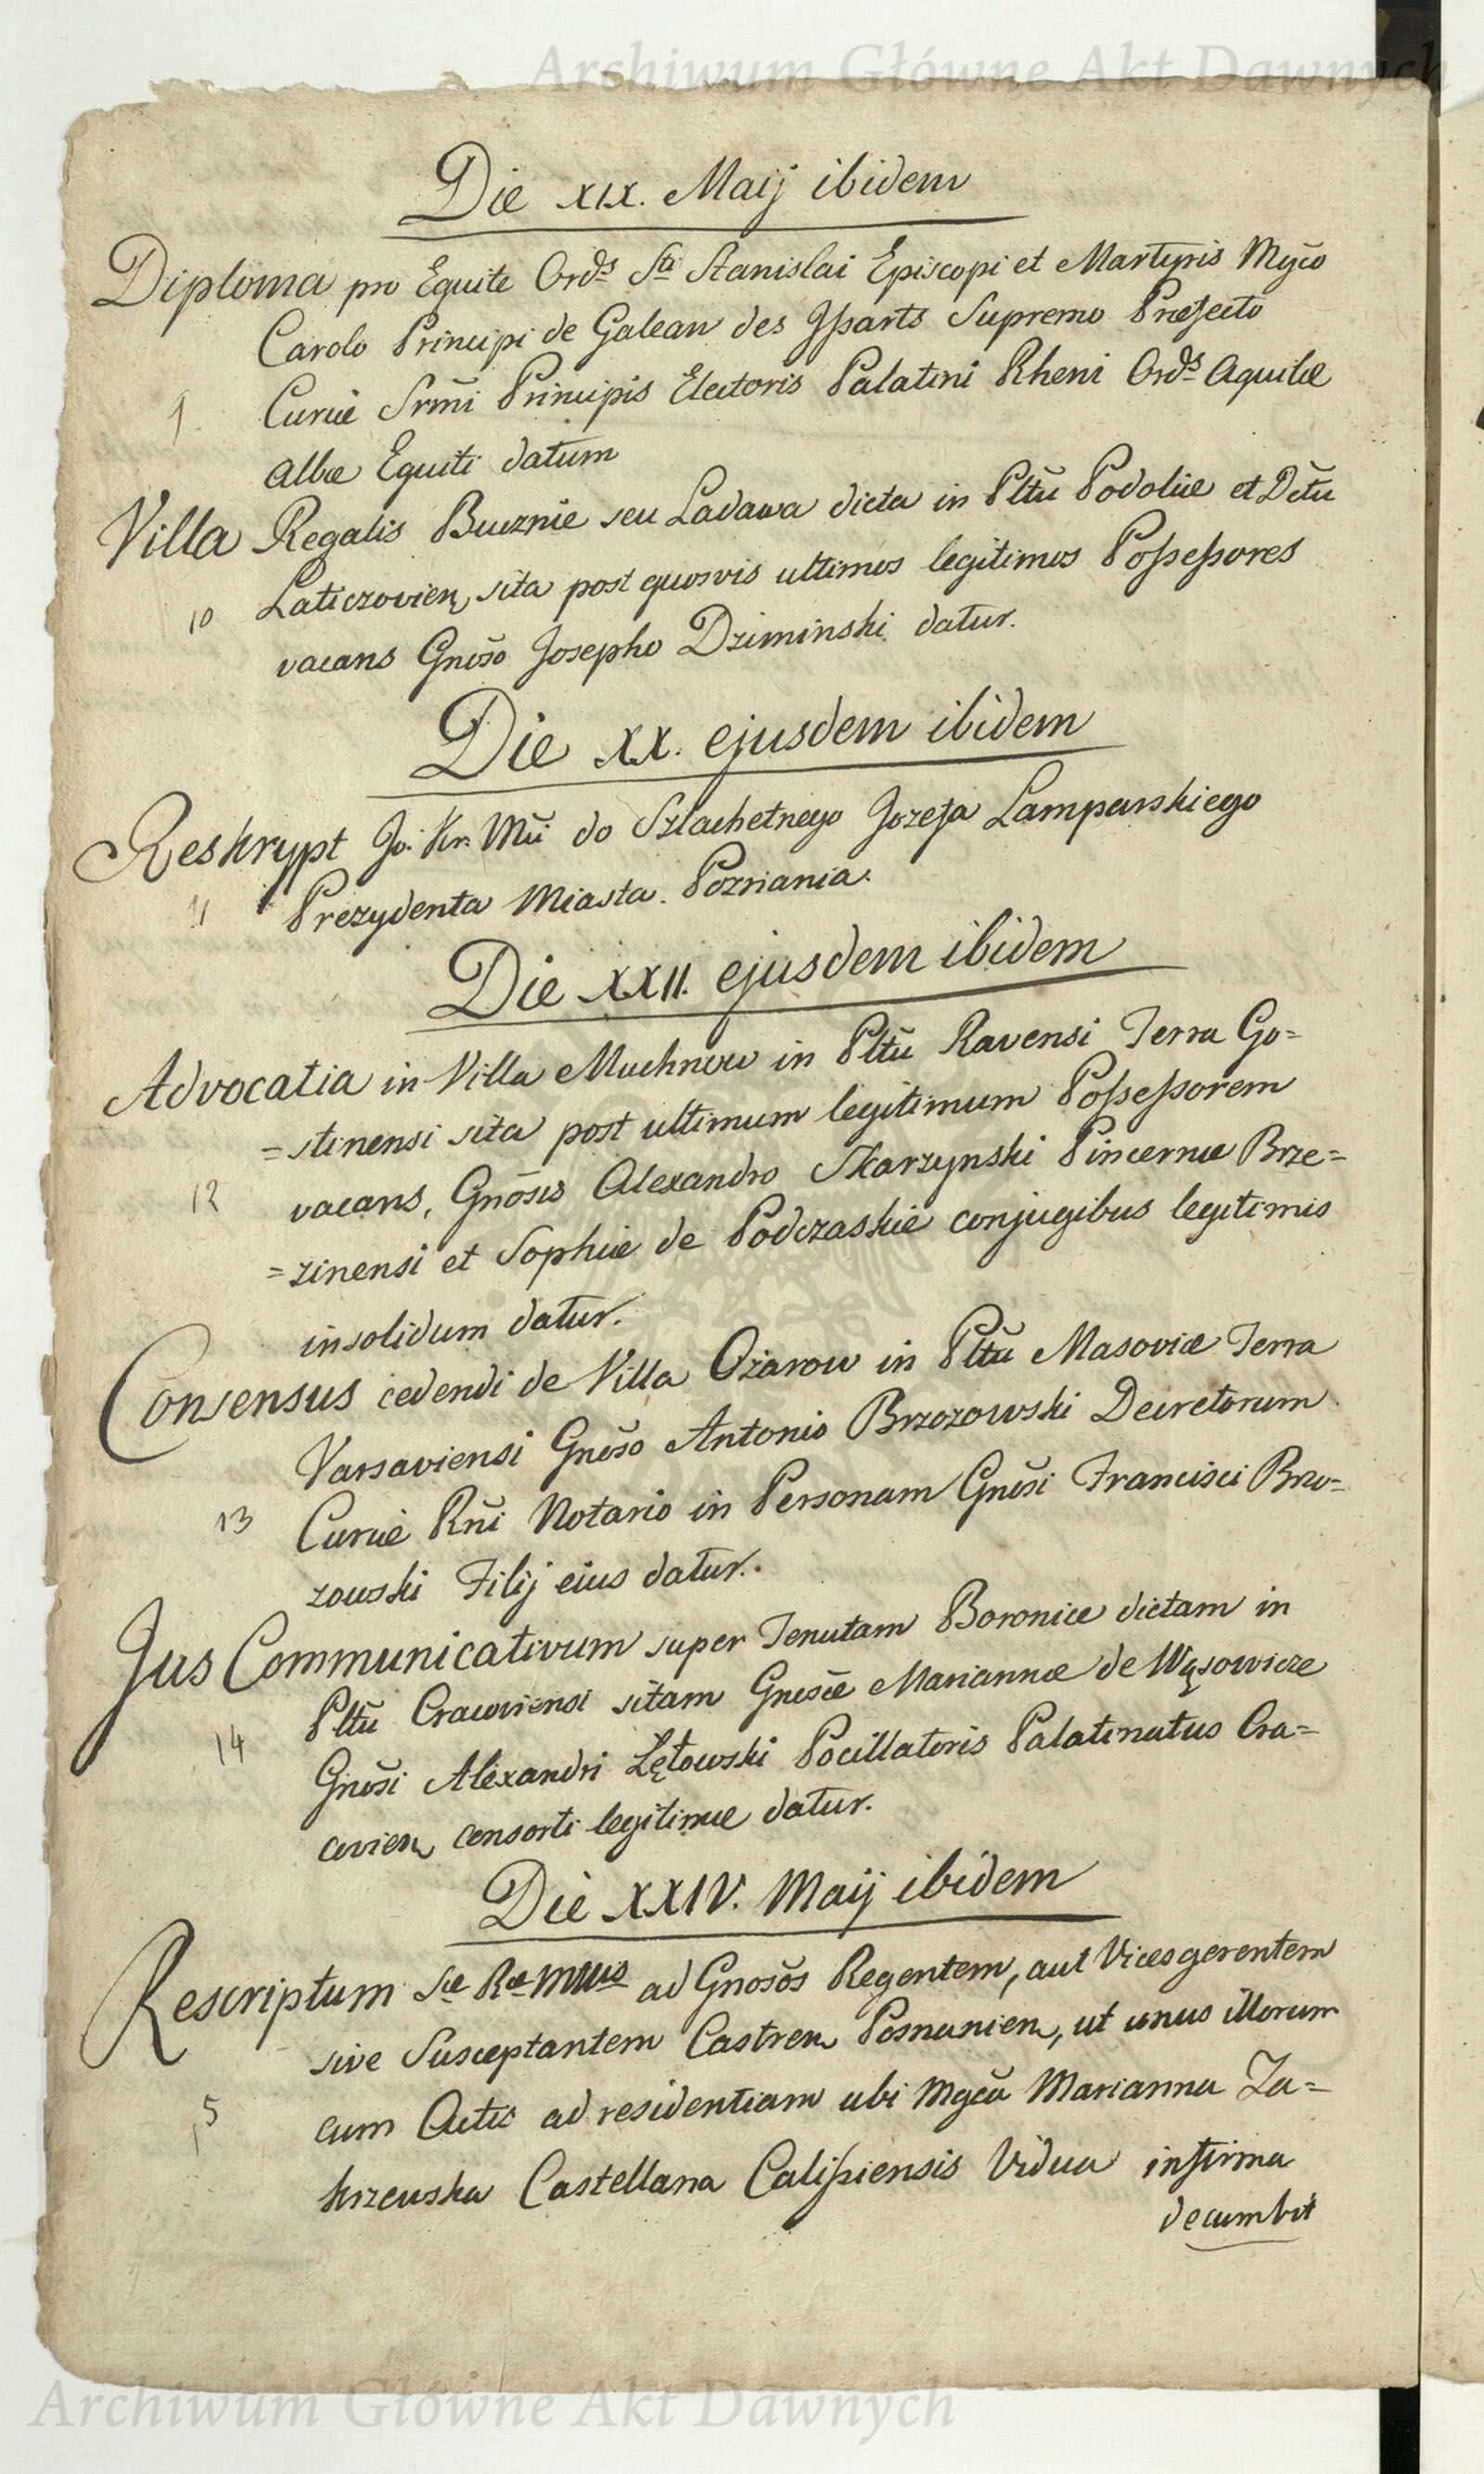 Archiwum Główne Akt Dawnych
Die XIX. Maij ibidem
Diploma pro Equite Ords Sti Stanislai Episcopi et Martyris Mgco
Carolo Principi de Galean des Issarts Supremo Præfecto
9. Curiæ Srmi Principis Electoris Palatini Rheni Ords Aquilæ
albæ Equiti datum
Villa Regalis Bucznie seu Ladawa dicta in Pltu Podoliæ et Dctu
10 Laticzovien, sita post quosvis ultimos legitimos Possessores
vacans Gnoso Josepho Dziminski datur.
Die XX. ejusdem ibidem
Reskrypt Jo. Kr. Mci do Szlachetnego Jozefa Lamparskiego
11 Prezydenta Miasta Poznania.
Die XXII. ejusdem ibidem
Advocatia in Villa Muchnow in Pltu Ravensi Terra Go=
=stinensi sita post ultimum legitimum Possessorem
12 vacans, Gnosis Alexandro Skarzynski Pincernæ Brze=
=zinensi et Sophiæ de Podczaskie conjugibus legitimis
insolidum datur.
Consensus cedendi de Villa Ożarow in Pltu Masoviæ Terra
Varsaviensi Gnoso Antonio Brzozowski Decretorum
13 Curiæ Rni Notario in Personam Gnosi Francisci Brzo=
zowski Filij eius datur.
Jus Communicativum super Tenutam Boronice dictam in
Pltu Cracoviensi sitam Gnosæ Mariannæ de Wąsowicze
14 Gnosi Alexandri Łętowski Pocillatoris Palatinatus Cra=
covien, consorti legitimæ datur.
Die XXIV. Maij ibidem
Rescriptum Sæ Ræ Mttis ad Gnosos Regentem, aut Vicesgerentem
sive Susceptantem Castren Posnanien, ut unus illorum
15 cum Actis ad residentiam ubi Mgca Marianna Za=
krzewska Castellana Calissiensis Vidua infirma
decumbit
Archiwum Główne Akt Dawnych